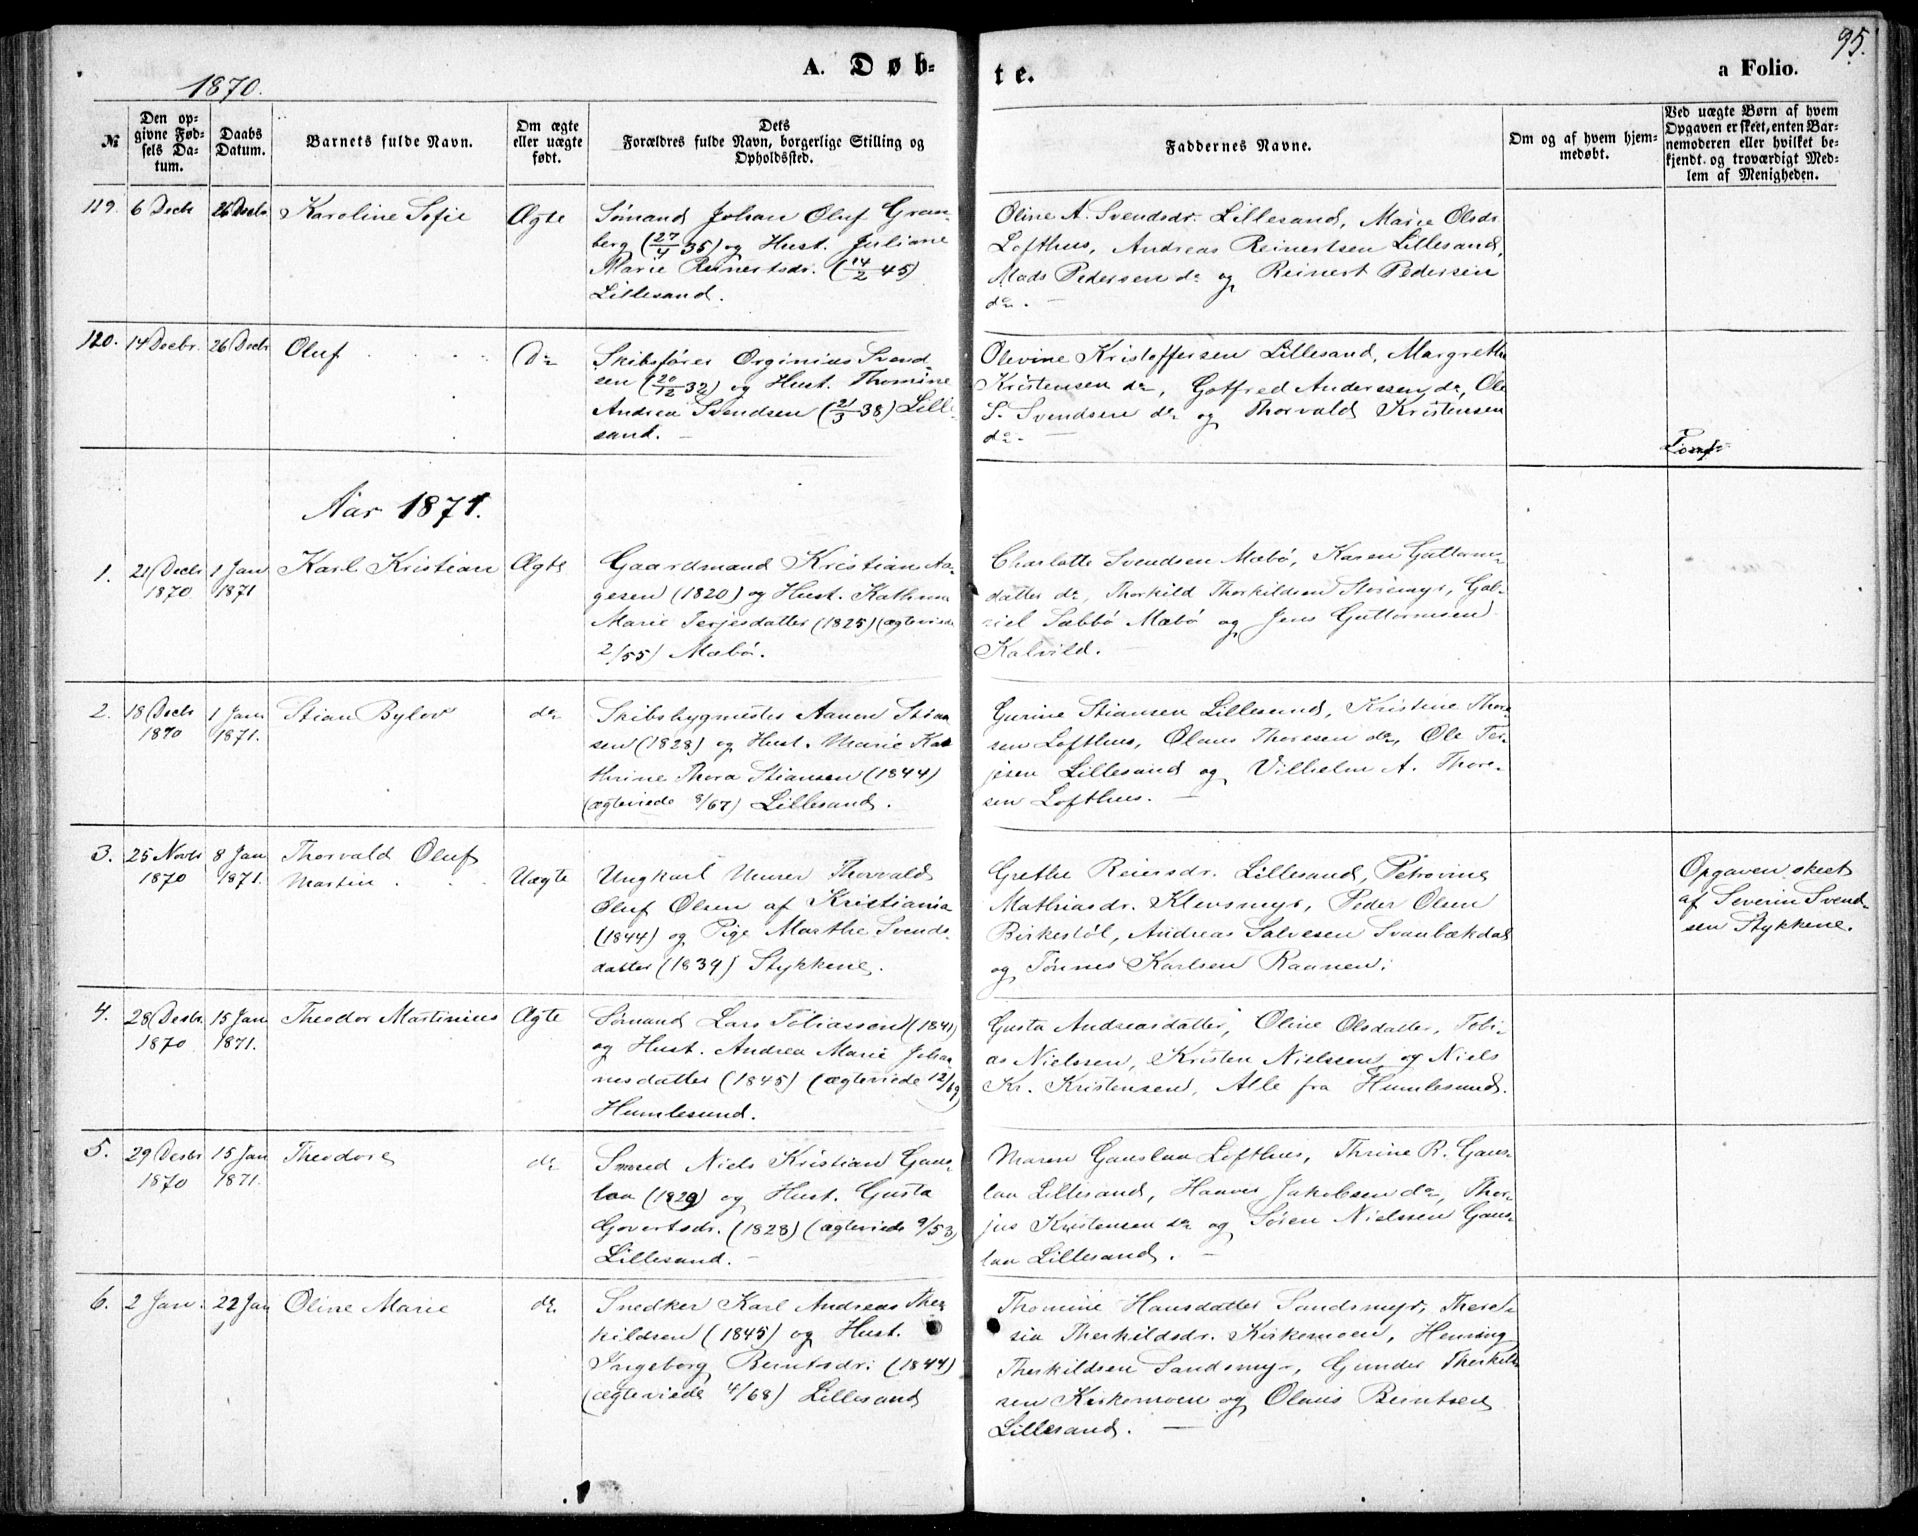 95.
1870.
A. Døb-
te.
a Folio.
№
Den op-
givne Fød-
sels Da-
tum.
Daabs
Datum.
Barnets fulde Navn.
Om ægte
eller uægte
født.
Dets
Forældres fulde Navn, borgerlige Stilling og
Opholdssted.
Faddernes Navne.
Om og af hvem hjem-
medøbt.
Ved uægte Børn af hvem
Opgaven er skeet, enten Bar-
nemoderen eller hvilket be-
kjendt og troværdigt Med-
lem af Menigheden.
119.
6 Decbr
26 Decbr
Karoline Sofie
Ægte
Sømand Johan Oluf Gran-
berg (27/4 35) og Hust. Juliane
Marie Reinertsdr. (14/2 45)
Lillesand.
Oline A. Svendsdr. Lillesand, Marie Olsdr
Lofthus, Andreas Reinertsen Lillesand,
Mads Pedersen do og Reinert Pedersen
do. —
120.
14 Decbr.
26 Decbr
Oluf
Do
Skibsfører Orginius Svend-
sen (20/12 32) og Hust. Thomine
Andrea Svendsen (21/3 38) Lille-
sand. —
Olevine Kristoffersen Lillesand, Margrethe
Kristensen do, Gotfred Anderssen do, Ole
S. Svendsen do og Thorvald Kristensen
do. —
Aar 1871.
1.
21 Decbr
1870
1 Jan
1871
Karl Kristian
Ægte
Gaardmand Kristian Aa-
gesen (1820) og Hust. Kathrine
Marie Terjesdatter (1825) (ægteviede
2/55) Mæbø.
Charlotte Svendsen Mæbø, Karen Guttorms-
datter do, Thorkild Thorkildsen Storemyr, Gab-
riel Sæbbø Mæbø og Jens Guttormsen
Kalvild. —
2.
18 Decbr
1870
1 Jan
1871.
Stian Bylov
do
Skibsbygmester Aanen Stian-
sen (1828) og Hust. Marie Kat
thrine Thora Stiansen (1844)
(ægteviede 8/67) Lillesand.
Gurine Stiansen Lillesand, Kristine Thor-
sen Lofthus, Olaus Thoresen do, Ole Ter-
jesen Lillesand og Vilhelm A. Thore-
sen Lofthus. —
3.
25 Novbr
1870
8 Jan
1871.
Thorvald Oluf
Martin
Uægte
Ungkarl Murer Thorvald
Oluf Olsen af Kristiania
(1844) og Pige Marthe Svends-
datter (1839) Stykkene.
Grethe Reiersdr. Lillesand, Petrovine
Mathiasdr. Klevsmyr, Peder Olsen
Birkestøl, Andreas Salvesen Svanbækdal
og Tønnes Karlsen Raanen.
Opgaven skeet
af Severin Svend-
sen Stykkene.
4.
28 Desbr
1870
15 Jan
1871.
Theodor Martinius
Ægte
Sømand Lars Tobiassen (1841)
og Hust. Andrea Marie Johan-
nesdatter (1845) (ægteviede 12/69)
Humlesund.
Gusta Andreasdatter, Oline Olsdatter, Tobi-
as Nielssen, Kristen Nielssen og Niels
Kr. Kristensen, Alle fra Humlesund.
5.
29 Desbr
1870
15 Jan
1871.
Theodore
do
Smed Niels Kristian Gaus-
laa (1829) og Hust. Gusta
Govertsdr. (1828) (ægteviede 9/53)
Lillesand. —
Maren Gauslaa Lofthus, Thrine R. Gaus-
laa Lillesand, Haaver Jakobsen do, Thor-
jus Kristensen do og Søren Nielssen Gaus-
laa Lillesand. —
6.
2 Jan.
22 Jan
Oline Marie
do
Snedker Karl Andreas Ther
kildsen (1845) og Hust.
Ingeborg Berntsdr. (1844)
(ægteviede 4/68) Lillesand
Thomine Hansdatter Sandsmyr, There-
sia Therkildsdr. Kirkemoen, Henning
Therkildsen Sandsmyr, Gunder Therkild-
sen Kirkemoen og Olaus Berntsen
Lillesand. —